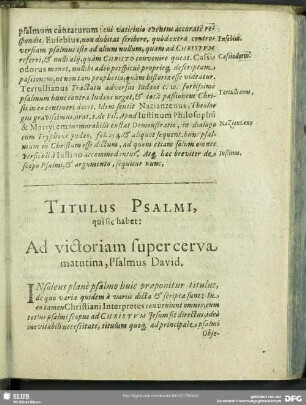 psalmum cantaturum: cui vaticinio eventus accuratè re-
spondit. Eusebius, non dubitat scribere, quòd extra contro-
versiam psalmus iste ad alium nullum, quàm ad CHRISTUM
referri, & nulli alij, quàm CHRISTO convenire queat. Cassio-
dorus monet, nullibi adeò propriè descriptam
passionem, ut non tam propheta, quàm historia esse videatur.
Tertullianus Tractatu adversus Iudaeos c. 10. fortissimè
psalmum hunc contra Iudaeos urget, & totâ passione Christi
Idem sentit Nazianzenus, Theolo-
gus gravissimus, orat. 2. de Fil. Apud Iustinum Philosophũ
& Martyrem memorabilis exstat Demonstratio, in dialogo
cum Tryphone Iudaeo, & aliquot sequent. hunc psal-
mum in Christum esse dictum, ad quem etiam solum omnes
versiculi à Iustino accommodantur. Atq; haec breviter de
scopo Psalmi, & argumento, sequitur nunc,
Eusebius.
Cassiodorus.
Tertullianus.
Nazianzenus
Iustinus.
TITULUS PSALMI,
qui sic habet:
Ad victoriam super cerva
matutina, Psalmus David.
INsolens planè psalmo huic praeponitur titulus,
de quo varia quidem à variis dicta & scripta sunt: In
eo tamen Christiani Interpretes conveniunt omnes, cum
totus psalmi scopus ad CHRISTUM Iesum sit directus, adeò
inevitabili necessitate, titulum quoq; ad principale psalmi
Obje-
SLUB
DFG